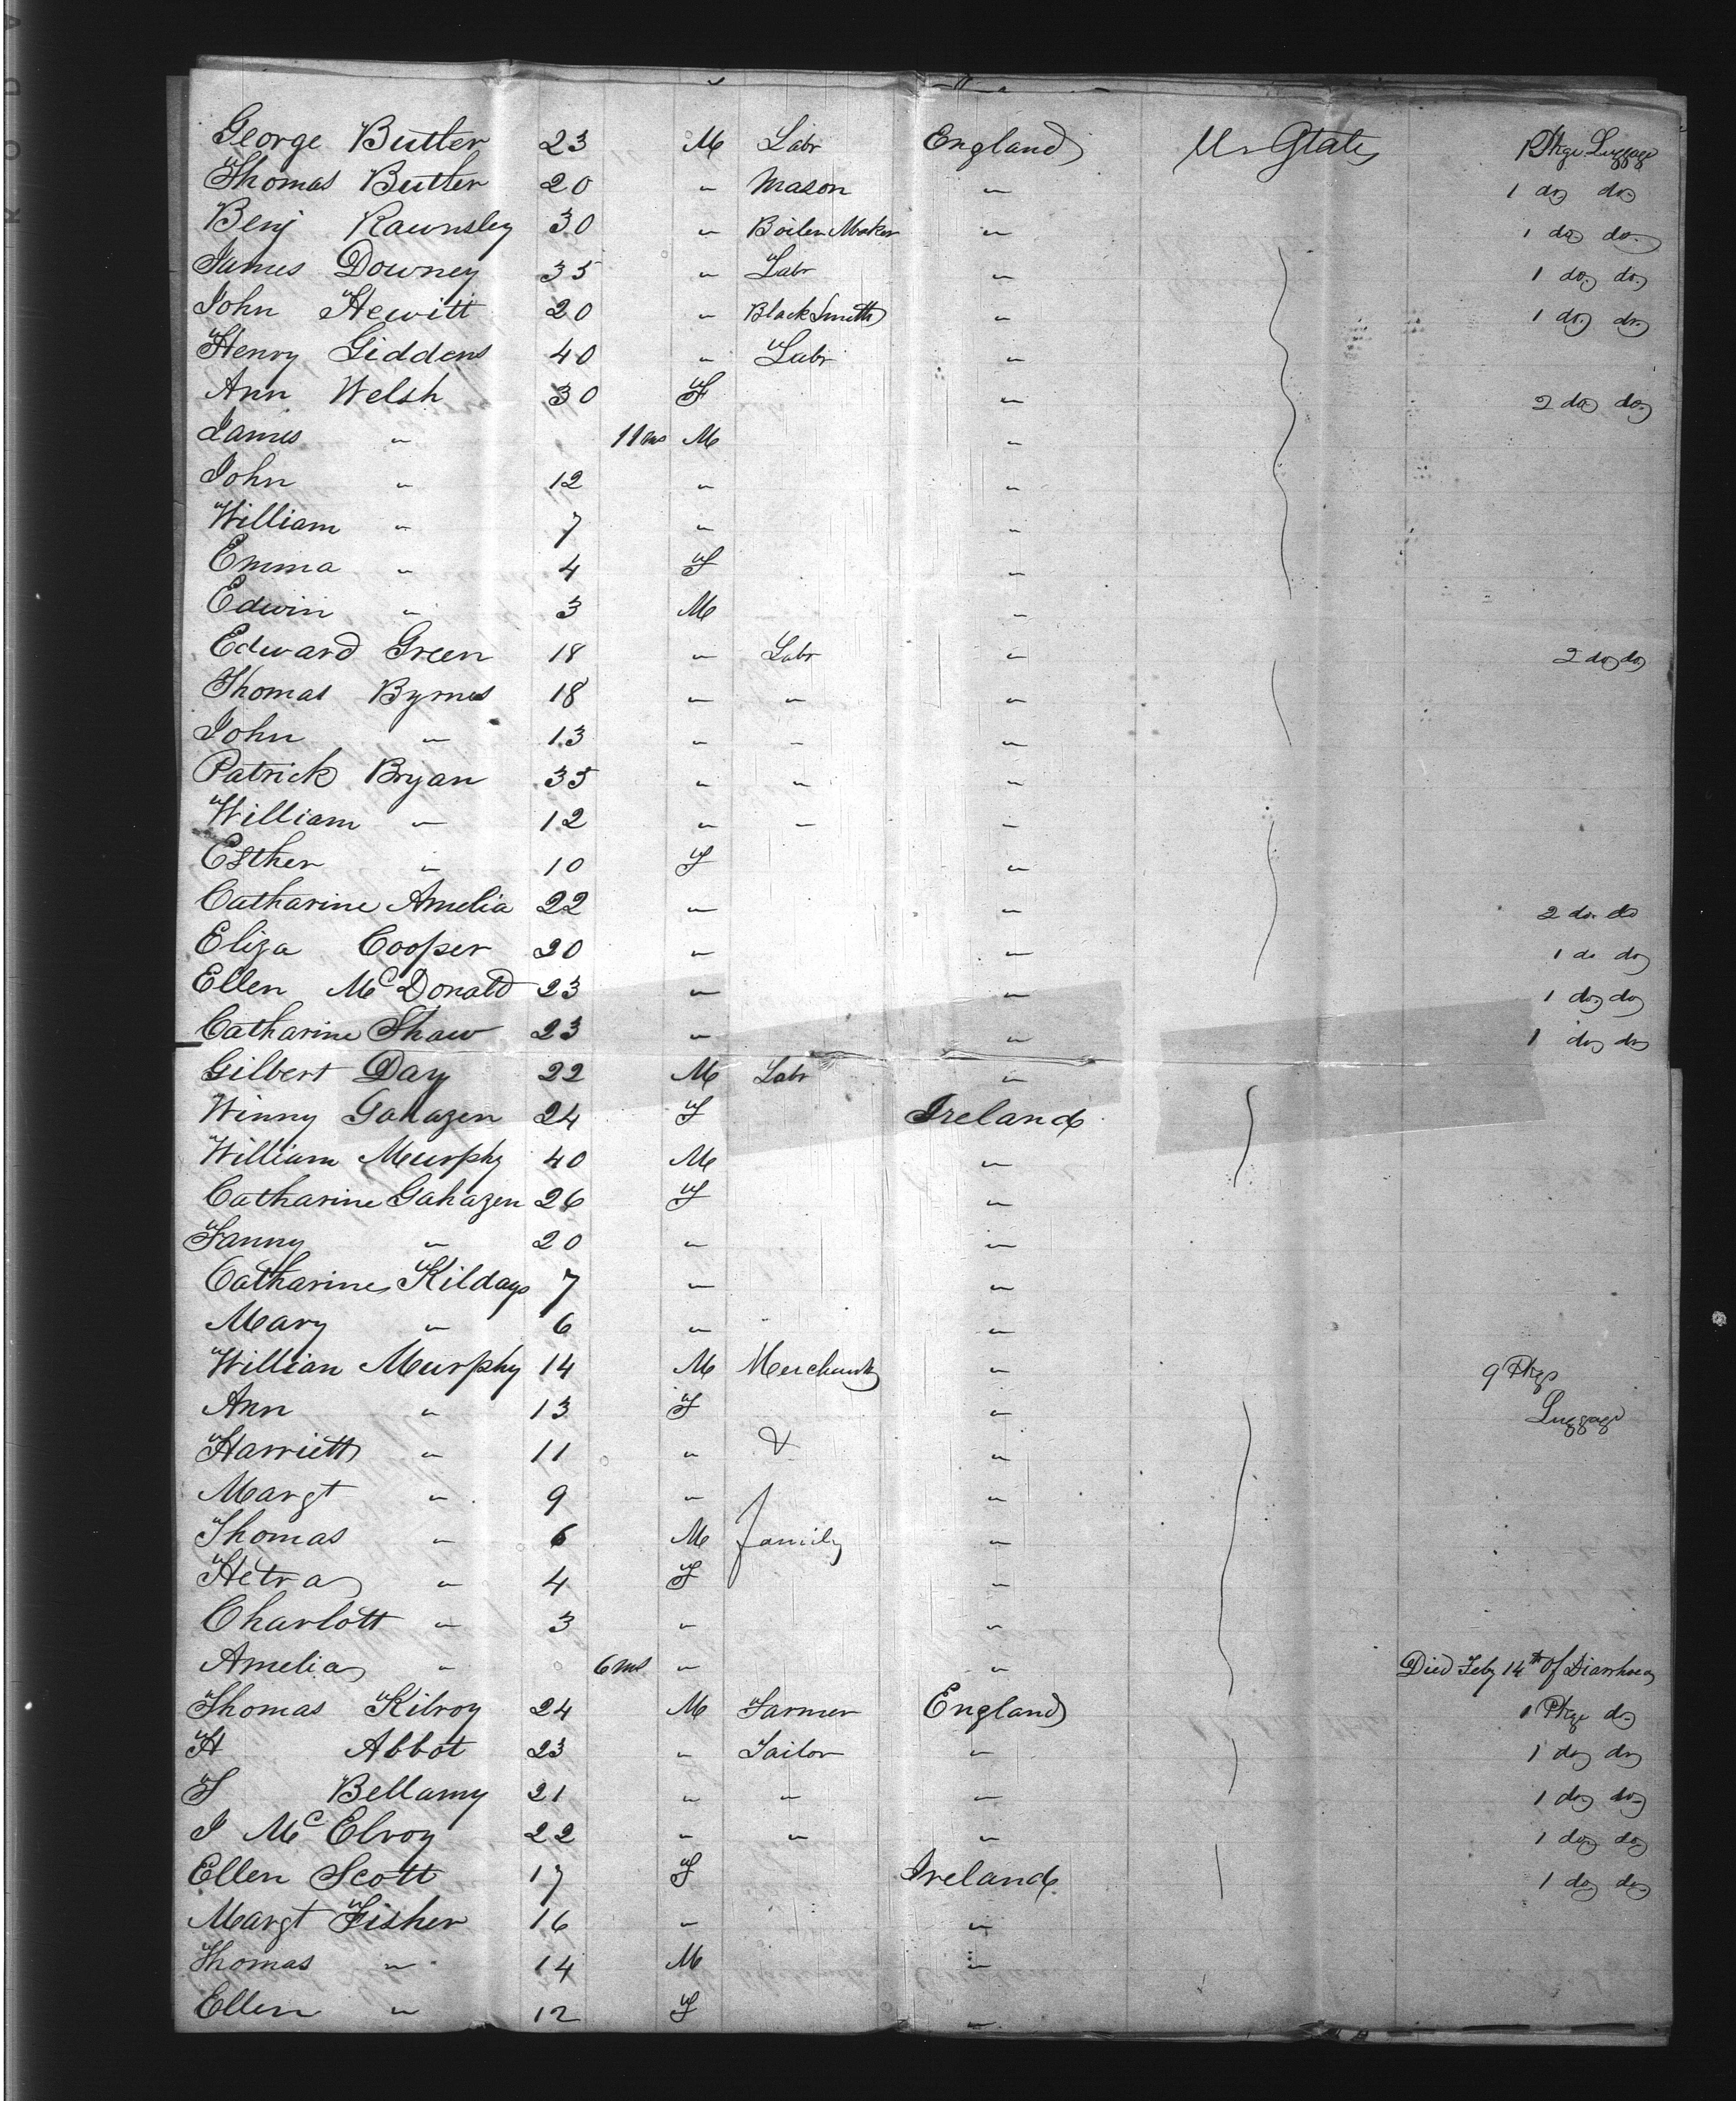 George Butler 23 M Labr England U. States 1 Pkge Luggage
Thomas Butler 20 " Mason " 1 do do
Benj Rawnsley 30 " Boiler Maker " 1 do do
James Downey 35 " Labr " 1 do do
John Hewitt 20 " BlackSmith " 1 do do
Henry Giddens 40 " Labr "
Ann Welsh 30 F " 2 do do
James " 11 ms M "
John " 12 " "
William " 7 " "
Emma " 4 F "
Edwin " 3 M "
Edward Green 18 " Labr " 2 do do
Thomas Byrnes 18 " " "
John " 13 " " "
Patrick Bryan 35 " " "
William " 12 " " "
Esther " 10 F "
Catharine Amelia 22 " " 2 do do
Eliza Cooper 20 " " 1 do do
Ellen McDonald 23 " " 1 do do
Catharine Shaw 23 " " 1 do do
Gilbert Day 22 M Labr "
Winny Gahazen 24 F Ireland
William Murphy 40 M "
Catharine Gahazen 26 F "
Fanny " 20 " "
Catharine Kilday 7 " "
Mary " 6 " "
William Murphy 14 M Merchant " 9 Pkgs
Ann " 13 F " Luggage
Harriett " 11 " & "
Margt " 9 " "
Thomas " 6 M family "
Hetra " 4 F "
Charlott " 3 " "
Amelia " 6 ms " " Died Feby 14th of Diarrhoea
Thomas Kilroy 24 M Farmer England 1 Pkge do
H Abbot 23 " Tailor " 1 do do
F Bellamy 21 " " " 1 do do
J McElroy 22 " " " 1 do do
Ellen Scott 17 F Ireland 1 do do
Margt Fisher 16 " "
Thomas " 14 M "
Ellen " 12 F "